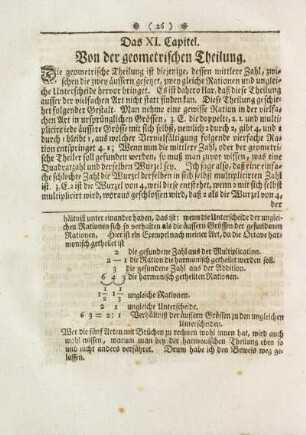 ( 26 )
Das XI. Capitel.
Von der geometrischen Theilung.
Die geometrische Theilung ist diejenige, dessen mittlere Zahl, zwi-
schen die zwey äussern gesetzt, zwey gleiche Rationen und ungleiche
Unterscheide hervor bringet. Es ist dahero klar, daß diese Theilung
ausser der vielfachen Art nicht statt finden kan. Diese Theilung geschie-
het folgender Gestalt. Man nehme eine gewisse Ration in der vielfa-
chen Art in ursprünglichen Grössen, z. E. die doppelte, 2. 1. und mul-
tiplicire jede äussere Grösse mit sich selbst, nemlich 2 durch 2, gibt 4, und 1
durch 1 bleibt 1, aus welcher Vervielfältigung folgende vierfache Ra-
tion entspringet 4. 1; Wenn nun die mittlere Zahl, oder der geometri-
sche Theiler soll gefunden werden, so muß man zuvor wissen, was eine
Quadratzahl und derselben Wurzel sey. Ich sage also, daß eine einfa-
che schlechte Zahl die Wurzel derselben in sich selbst multiplicirten Zahl
ist. z. E. 2 ist die Wurzel von 4, weil diese entstehet, wenn 2 mit sich selbst
multiplicirt wird, woraus geschlossen wird, daß 2 als die Wurzel von 4,
der
hältniß unter einander haben, das ist: wenn die Unterscheide der unglei-
chen Rationen sich so verhalten als die äussern Grössen der gefundenen
Rationen. Hier ist ein Exempel nach meiner Art, da die Octave harmo-
nisch getheilet ist
2 die gefundene Zahl aus der Multiplication.
2 — 1 die Ration die harmonisch getheilet werden soll.
3 die gefundene Zahl aus der Addition.
6 4 3 die harmonisch getheilten Rationen.
ungleiche Rationen.
2 1 ungleiche Unterscheide.
6 3 = 2: 1 Verhältniß der äussern Grössen zu den ungleichen
Unterscheiden.
Wer die fünf Arten mit Brüchen zu rechnen wohl innen hat, wird auch
wohl wissen, warum man bey der harmonischen Theilung eben so
und nicht anders verfähret. Drum habe ich den Beweis weg ge-
lassen.